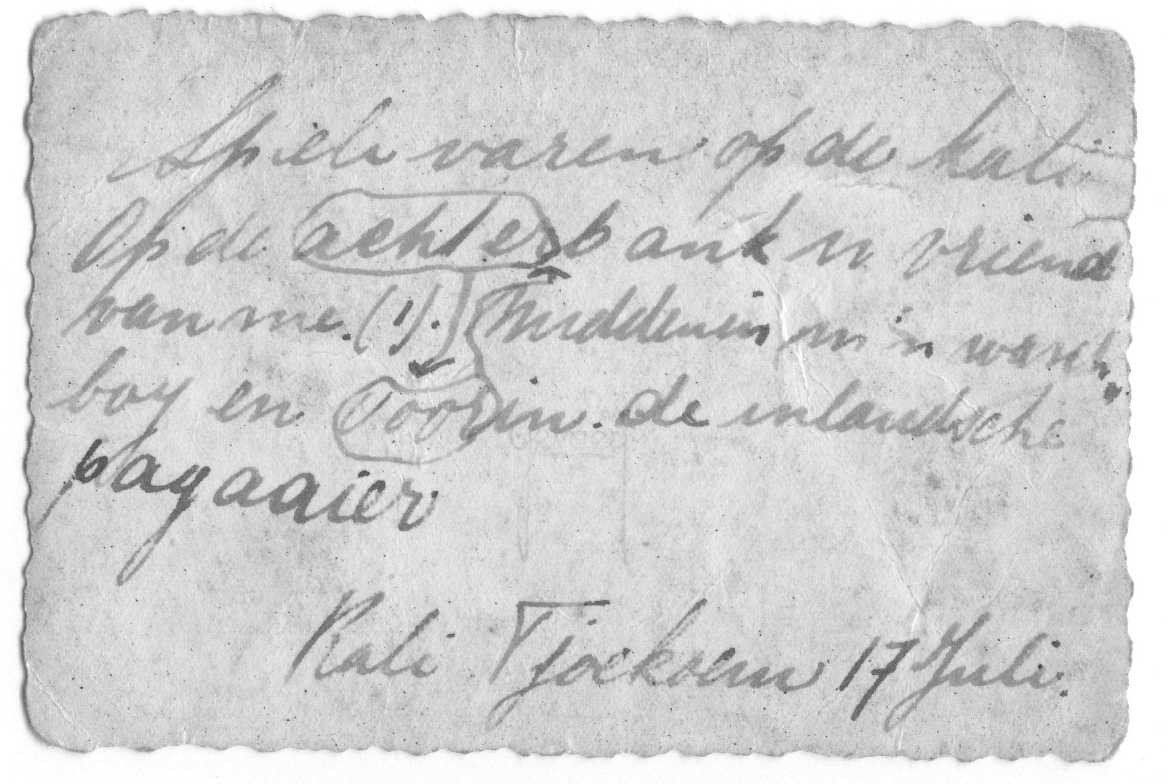 Spiele varen op de kali
Op de achterbank n vriend
van me. (1). Middenin m'n wasch-
boy en Voorin. de inlandsche
pagaaier
Kali Tjoekoem 17 Juli.